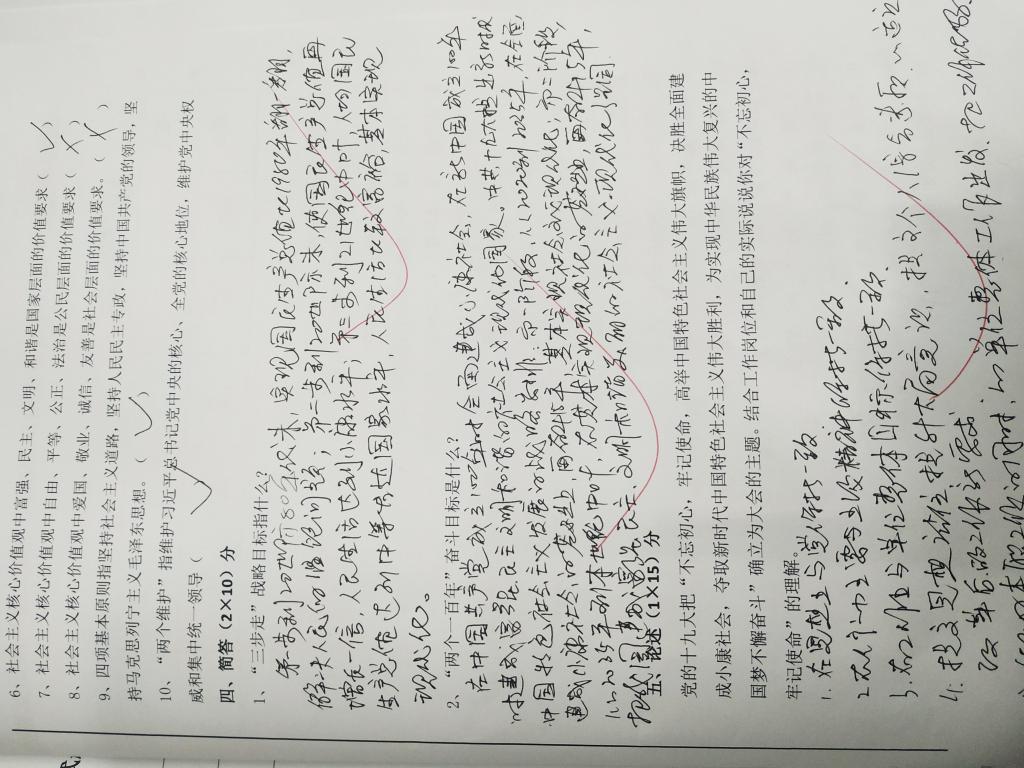 6、社会主义核心价值观中富强、民主、文明、和谐是国家层面的价值要求（√）
7、社会主义核心价值观中自由、平等、公正、法治是公民层面的价值要求（×）
8、社会主义核心价值观中爱国、敬业、诚信、友善是社会层面的价值要求。（×）
9、四项基本原则指坚持社会主义道路，坚持人民民主专政，坚持中国共产党的领导，坚
持马克思列宁主义毛泽东思想。（√）
10、“两个维护”指维护习近平总书记党中央的核心、全党的核心地位，维护党中央权
威和集中统一领导（√
四、简答（2×10）分
1、“三步走”战略目标指什么？
第一步到20世纪80年代末，实现国民生产总值比1980年翻一翻，
解决人民的温饱问题；第二步到20世纪末，使国民生产总值再
增长一倍，人民生活达到小康水平；第三步到21世纪中叶，人均国民
生产总值达到中等发达国家水平，人民生活比较富裕，基本实现
现代化。
2、“两个一百年”奋斗目标是什么？
在中国共产党成立100年时全面建成小康社会，在新中国成立100年
时建成富强民主文明和谐的社会主义现代化国家。中共十九大报告
中国特色社会主义发展的战略安排：第一阶段，从2020到2035年，在全面
建成小康社会的基础上，再奋斗15年，基本实现社会主义现代化；第二阶段，
从2035年到本世纪中叶，在基本实现现代化的基础上再奋斗15年，
把我国建成富强民主文明和谐美丽的社会主义现代化强国
五、论述（1×15）分
党的十九大把“不忘初心，牢记使命，高举中国特色社会主义伟大旗帜，决胜全面建
成小康社会，夺取新时代中国特色社会主义伟大胜利，为实现中华民族伟大复兴的中
国梦不懈奋斗”确立为大会的主题。结合工作岗位和自己的实际说说你对“不忘初心，
牢记使命”的理解。
1.在思想上与党保持一致
2.在行为上要与上级精神保持一致。
3.在工作上与单位整体目标保持一致
4.